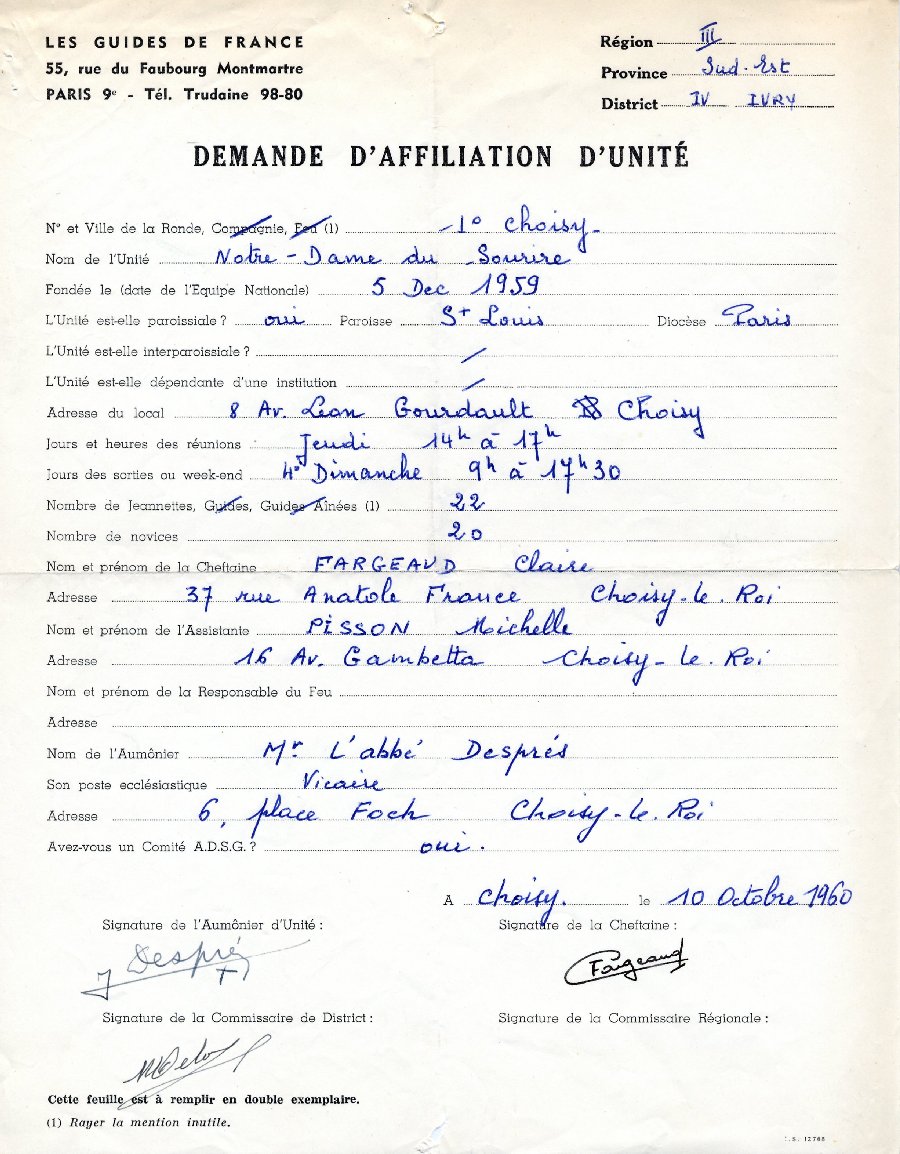 LES GUIDES DE FRANCE
55, rue du Faubourg Montmartre
PARIS 9e - Tél. Trudaine 98-80
Région III
Province Sud-Est
District IV IVRY
DEMANDE D'AFFILIATION D'UNITÉ
N° et Ville de la Ronde, Compagnie, Feu (1) 1° Choisy
Nom de l'Unité Notre-Dame du Sourire
Fondée le (date de l'Equipe Nationale) 5 Dec 1959
L'Unité est-elle paroissiale ? oui Paroisse St Louis Diocèse Paris
L'Unité est-elle interparoissiale ? /
L'Unité est-elle dépendante d'une institution /
Adresse du local 8 Av. Léon Gourdault Choisy
Jours et heures des réunions Jeudi 14h à 17h
Jours des sorties ou week-end 4° Dimanche 9h à 17h30
Nombre de Jeannettes, Guides, Guides Aînées (1) 22
Nombre de novices 20
Nom et prénom de la Cheftaine FARGEAUD Claire
Adresse 37 rue Anatole France Choisy-le-Roi
Nom et prénom de l'Assistante PISSON Michelle
Adresse 16 Av. Gambetta Choisy-le-Roi
Nom et prénom de la Responsable du Feu
Adresse
Nom de l'Aumônier Mr L'abbé Després
Son poste ecclésiastique Vicaire
Adresse 6, place Foch Choisy-le-Roi
Avez-vous un Comité A.D.S.G. ? oui.
A Choisy. le 10 Octobre 1960
Signature de l'Aumônier d'Unité :
Signature de la Cheftaine :
J Després
Fargeaud
Signature de la Commissaire de District :
Signature de la Commissaire Régionale :
Cette feuille est à remplir en double exemplaire.
(1) Rayer la mention inutile.